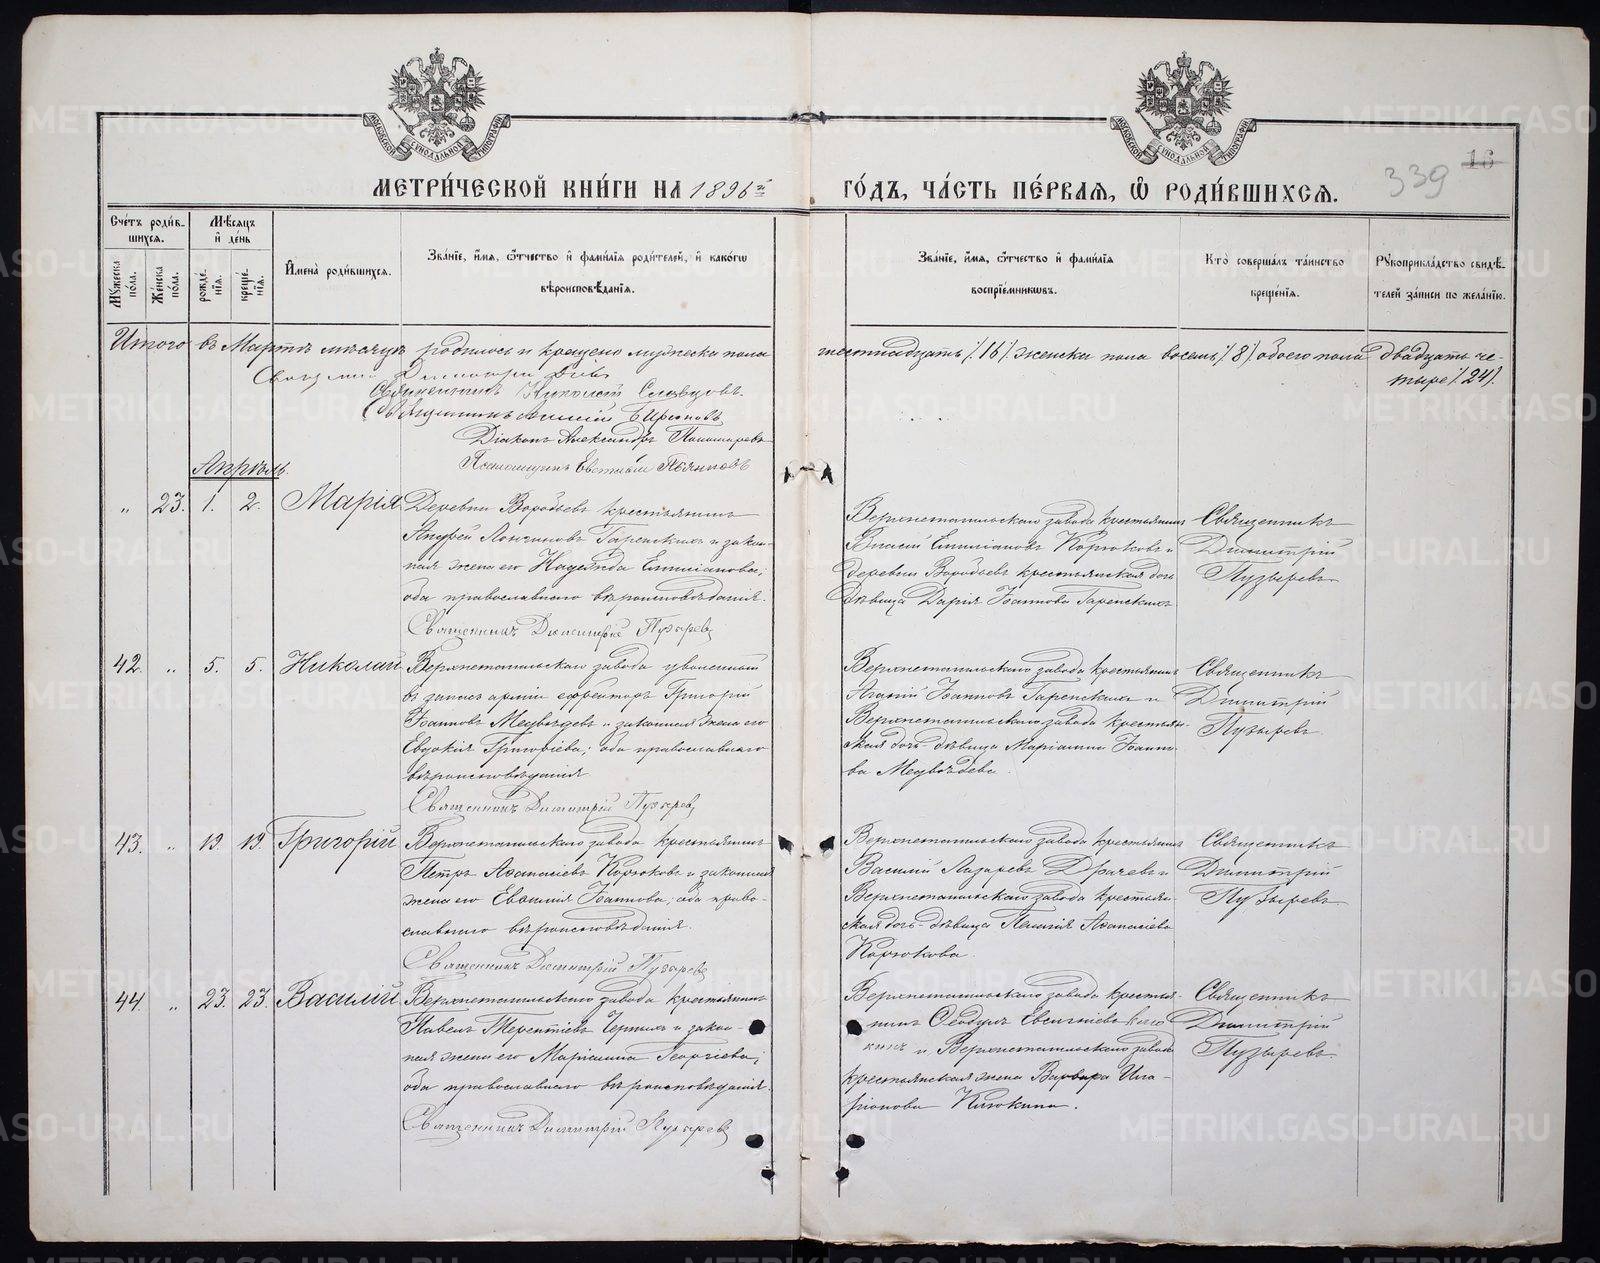 МОСКОВСКОЙ СУНОДАЛЬНОЙ ТИПОГРАФІИ
МОСКОВСКОЙ СУНОДАЛЬНОЙ ТИПОГРАФІИ
МЕТРИ́ЧЕСКОЙ КНИ́ГИ НА 1896й
ГО́ДЪ, ЧА́СТЬ ПЕ́РВАЯ, Ѡ РОДИ́ВШИХСЯ.
339 16
Сче́тъ роди́в-
шихся.
Мѣсяцъ
и҆ де́нь
Мꙋ́жеска по́ла.
Же́нска по́ла.
рожде́нїя.
креще́нїя.
И҆мена̀ роди́вшихся.
Зва́нїе, и҆́мя, ѻ҆́тчество и҆ фами́лїя роди́телей, и҆ како́гѡ
вѣроисповѣ́данїя.
Зва́нїе, и҆́мя, ѻ҆́тчество и҆ фами́лїя
воспрїе́мникѡвъ.
Кто̀ соверша́лъ та́инство
креще́нїя.
Рꙋкоприкла́дство свидѣ́-
телей за́писи по жела́нїю.
Итого въ Мартѣ мѣсяцѣ родилось и крещено мужеска пола
шестнадцать /16/ женска пола восемь /8/ обоего пола двадцать че-
тыре /24/.
Священникъ Николай Словцовъ.
Діаконъ Александръ Пономаревъ
Псаломщикъ
Апрѣль.
„ 23. 1. 2. Марія
Деревни Воробьевъ крестьянинъ
Андрей Логиновъ Гаренскихъ и закон-
ная жена его Надежда Емиліанова;
оба православнаго вѣроисповѣданія.
Священникъ Димитрій Пузырев
Верхнетагильскаго завода крестьянинъ
Емиліановъ Корюковъ и
деревни Воробьевъ крестьянская дочь
дѣвица Дарія Іоаннова Гаренскихъ
Священникъ
Димитрій
Пузыревъ
42. „ 5. 5. Николай
Верхнетагильскаго завода уволенный
въ запасъ арміи ефрейторъ Григорій
Іоанновъ Медвѣдевъ и законная жена его
Евдокія Григоріева; оба православнаго
вѣроисповѣданія
Священникъ Димитрій Пузырев
Верхнетагильскаго завода крестьянинъ
Іоанновъ Гаренскихъ и
Верхнетагильскаго завода крестьян-
ская дочь дѣвица Маріамна Іоанно-
ва Медвѣдева.
Священникъ
Димитрій
Пузыревъ
43. „ 12. 12. Григорій
Верхнетагильскаго завода крестьянинъ
Петръ Аѳанасіевъ Корюковъ и законная
жена его Евѳимія Іоаннова; оба право-
славнаго вѣроисповѣданія.
Священникъ Димитрій Пузырев
Верхнетагильскаго завода крестьянинъ
Василій Лазаревъ Драчевъ и
Верхнетагильскаго завода крестьян-
ская дочь дѣвица Аѳанасіева
Корюкова.
Священникъ
Димитрій
Пузыревъ
44. „ 23. 23. Василій
Верхнетагильскаго завода крестьянинъ
Павелъ Терентіевъ Черныхъ и закон-
ная жена его Маріамна Георгіева;
оба православнаго вѣроисповѣданія.
Священникъ Димитрій Пузырев
Верхнетагильскаго завода крестья-
нинъ Ѳеодулъ
и Верхнетагильскаго завода
крестьянская жена Варвара Ила-
ріонова Кизюкина.
Священникъ
Димитрій
Пузыревъ
METRIKI.GASO-URAL.RU